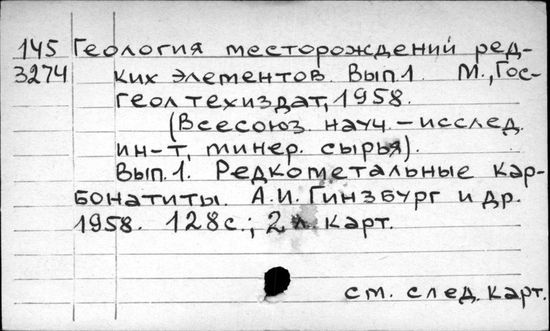 145 Геология месторождений ред-
3274 ких элементов. Вып.1. М., Гос-
геолтехиздат, 1958.
(Всесоюз. науч.-исслед.
ин-т, минер. сырья).
Вып.1. Редкометальные кар-
бонатиты. А.И. Гинзбург и др.
1958. 128с.; 2 л. карт.
см. след. карт.